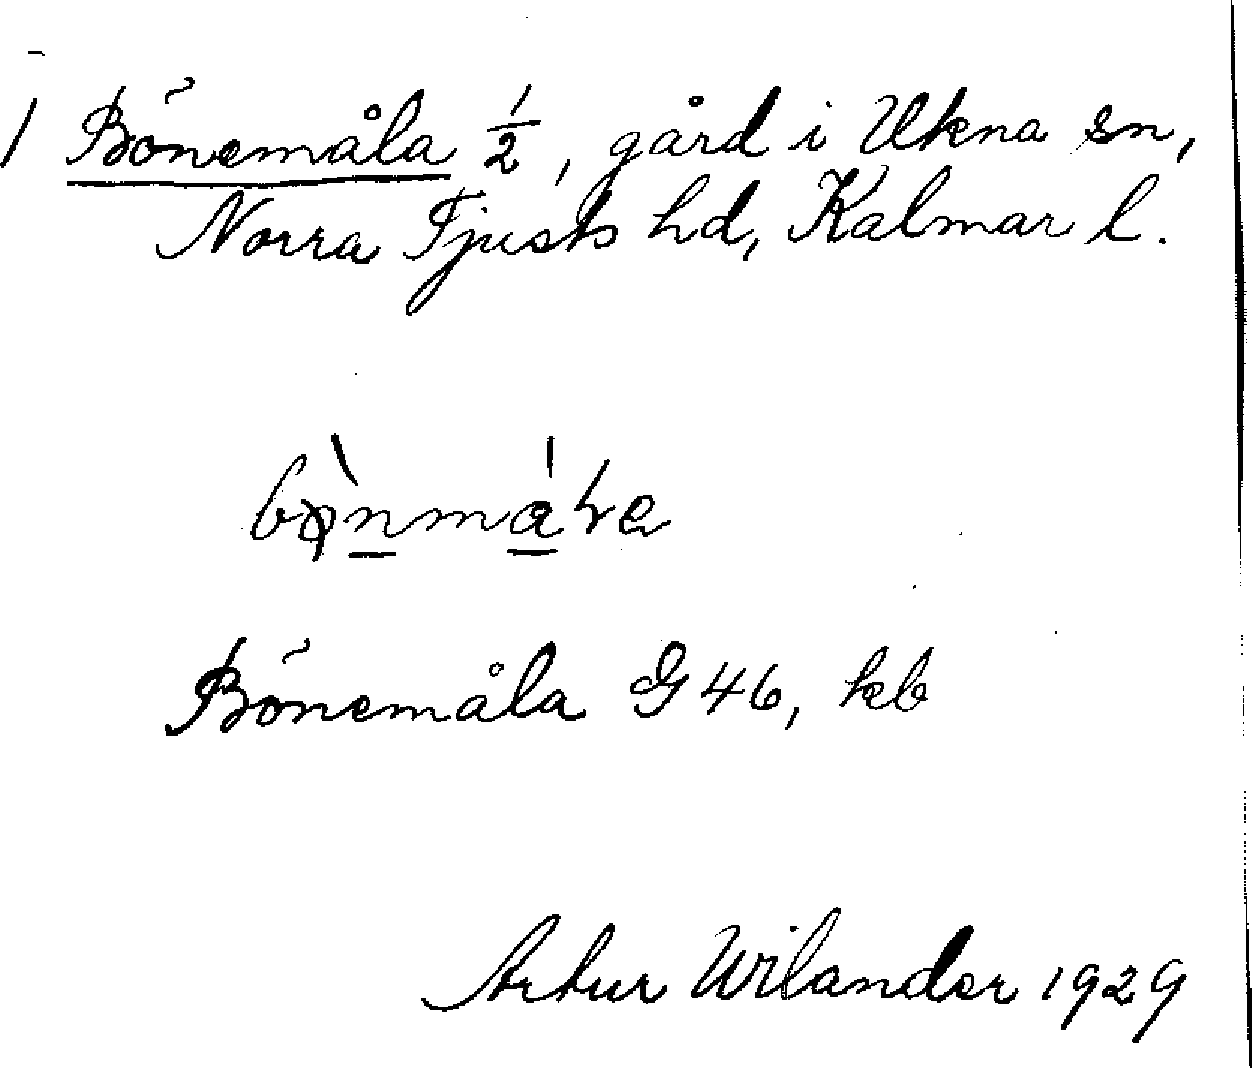 1 Bönemåla 1/2, gård i Ukna sn,
Norra Tjusts hd, Kalmar l.
Bönemåla G 46, kb
Artur Wilander 1929